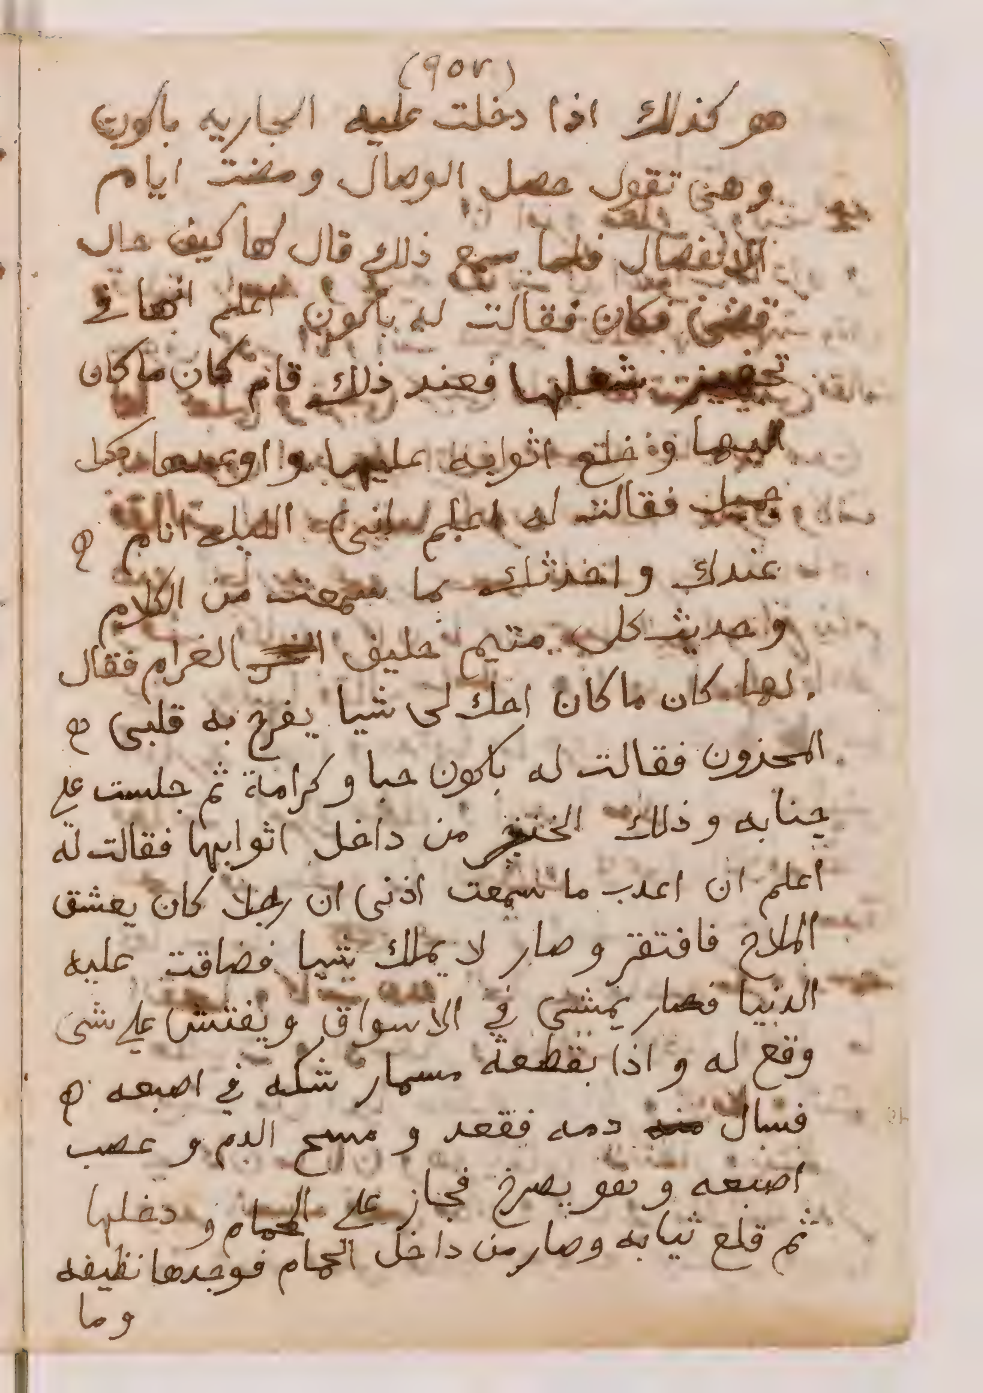 (٩٥٧)
هو كذلك اذا دخلت عليه الجاريه باكون
وهى تقول حصل الوصال ومضت ايام
الانفصال فلما سمع ذلك قال لها كيف حال
فكان فقالت له باكون اعلم انها فى
تجهيز شغلها فعند ذلك قام كان ماكان
اليها وخلع اثوابه عليها و اوعدها بكل
جميل فقالت له اعلم اننى الليله انام
عندك و احدثك بما سمعت من الكلام
وحديث كل متيم حليف الغرام فقال
لها كان ماكان احك لى شيا يفرح به قلبى
المحزون فقالت له باكون حبا و كرامة ثم جلست على
جنابه و ذلك الخنجر من داخل اثوابها فقالت له
اعلم ان اعدب ما سمعت اذنى ان رجلا كان يعشق
الملاح فافتقر و صار لا يملك شيا فضاقت عليه
الدنيا فصار يمشى فى الاسواق و يفتش على شى
وقع له و اذا بقطعة مسمار شكه فى اصبعه
فسال دمه فقعد و مسح الدم و عصب
اصبعه و هو يصرخ فجاز على الحمام و دخلها
ثم قلع ثيابه وصار من داخل الحمام فوجدها نظيفه
وما